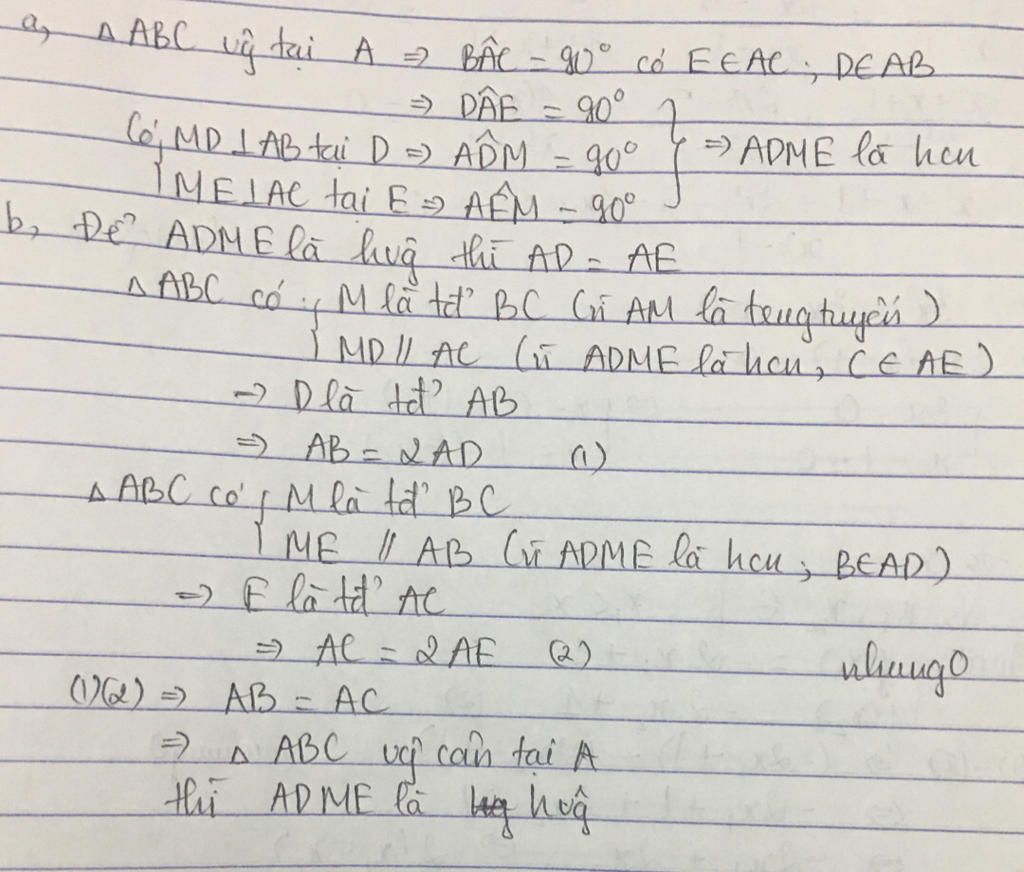 a, △ABC vg̃ tại A ⇒ BÂC = 90° có E∈AC; D∈AB
⇒ DÂE = 90°
Có { MD⊥AB tại D ⇒ AD̂M = 90° } ⇒ ADME là hcn
ME⊥AC tại E ⇒ AÊM = 90°
b, Để ADME là hvg̃ thì AD = AE
△ABC có { M là tđ' BC (vì AM là trung tuyến)
MD // AC (vì ADME là hcn, C∈AE)
→ D là tđ' AB
⇒ AB = 2AD (1)
△ABC có { M là tđ' BC
ME // AB (vì ADME là hcn; B∈AD)
⇒ E là tđ' AC
⇒ AC = 2AE (2)
nhung0
(1)(2) ⇒ AB = AC
⇒ △ABC vg̃ cân tại A
thì ADME là hvg̃